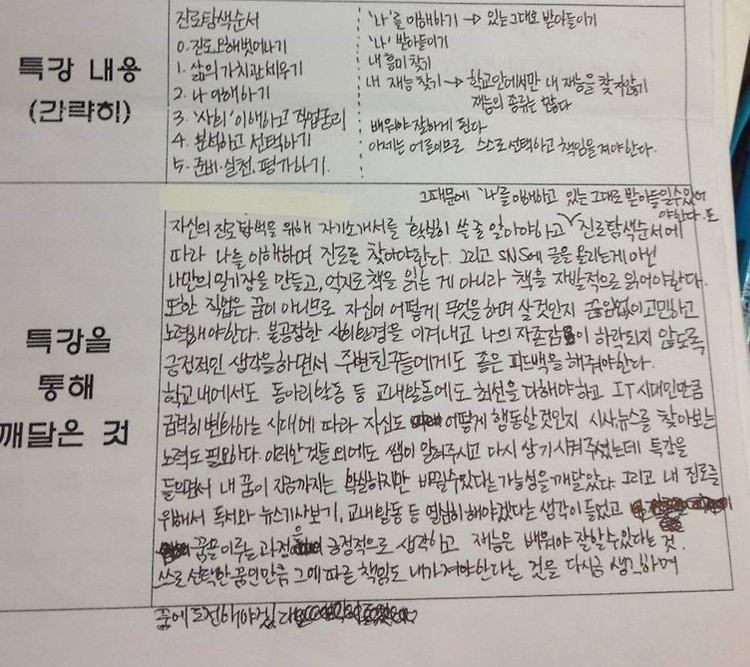 특강 내용
(간략히)
진로탐색순서
0. 진로오해벗어나기
1. 삶의가치관세우기
2. 나 이해하기
3. '사회'이해하고 직업분리
4. 분석하고 선택하기
5. 준비·실천, 평가하기.
'나'를 이해하기 → 있는그대로 받아들이기
'나' 받아들이기
내 흥미 찾기
내 재능 찾기 → 학교안에서만 내 재능을 찾지않기
재능의 종류는 많다
배워야 잘하게 된다
이제는 어른이므로 스스로 선택하고 책임을 져야한다.
특강을
통해
깨달은 것
그때문에 '나'를 이해하고 있는 그대로 받아들일수있어
야한다. 또
자신의 진로탐색을 위해 자기소개서를 확실히 쓸 줄 알아야하고 ∨ 진로탐색순서에
따라 나를 이해하며 진로를 찾아야한다. 그리고 SNS에 글을 올리는게 아닌
나만의 일기장을 만들고, 억지로 책을 읽는 게 아니라 책을 자발적으로 읽어야한다.
또한 직업은 꿈이 아니므로 자신이 어떻게 무엇을 하며 살 것인지 끊임없이 고민하고
노력해야한다. 불공정한 사회환경을 이겨내고 나의 자존감이 하락되지 않도록
긍정적인 생각을하면서 주변친구들에게도 좋은 피드백을 해줘야한다.
학교내에서도 동아리활동 등 교내활동에도 최선을 다해야하고 IT시대인만큼
급격히 변화하는 시대에 따라 자신도 어떻게 행동할것인지 시사뉴스를 찾아보는
노력도 필요하다. 이러한것들 외에도 쌤이 알려주시고 다시 상기시켜주셨는데 특강을
들으면서 내 꿈이 지금까지는 확실하지만 바뀔수있다는 가능성을 깨달았다. 그리고 내 진로를
위해서 독서와 뉴스기사보기, 교내활동 등 열심히 해야겠다는 생각이 들었고
꿈을 이루는 과정을 긍정적으로 생각하고 재능은 배워야 잘할수있다는 것.
스스로 선택한 꿈인만큼 그에 따른 책임도 내가 져야한다는 것을 다시금 생각하며
꿈에 도전해야겠다